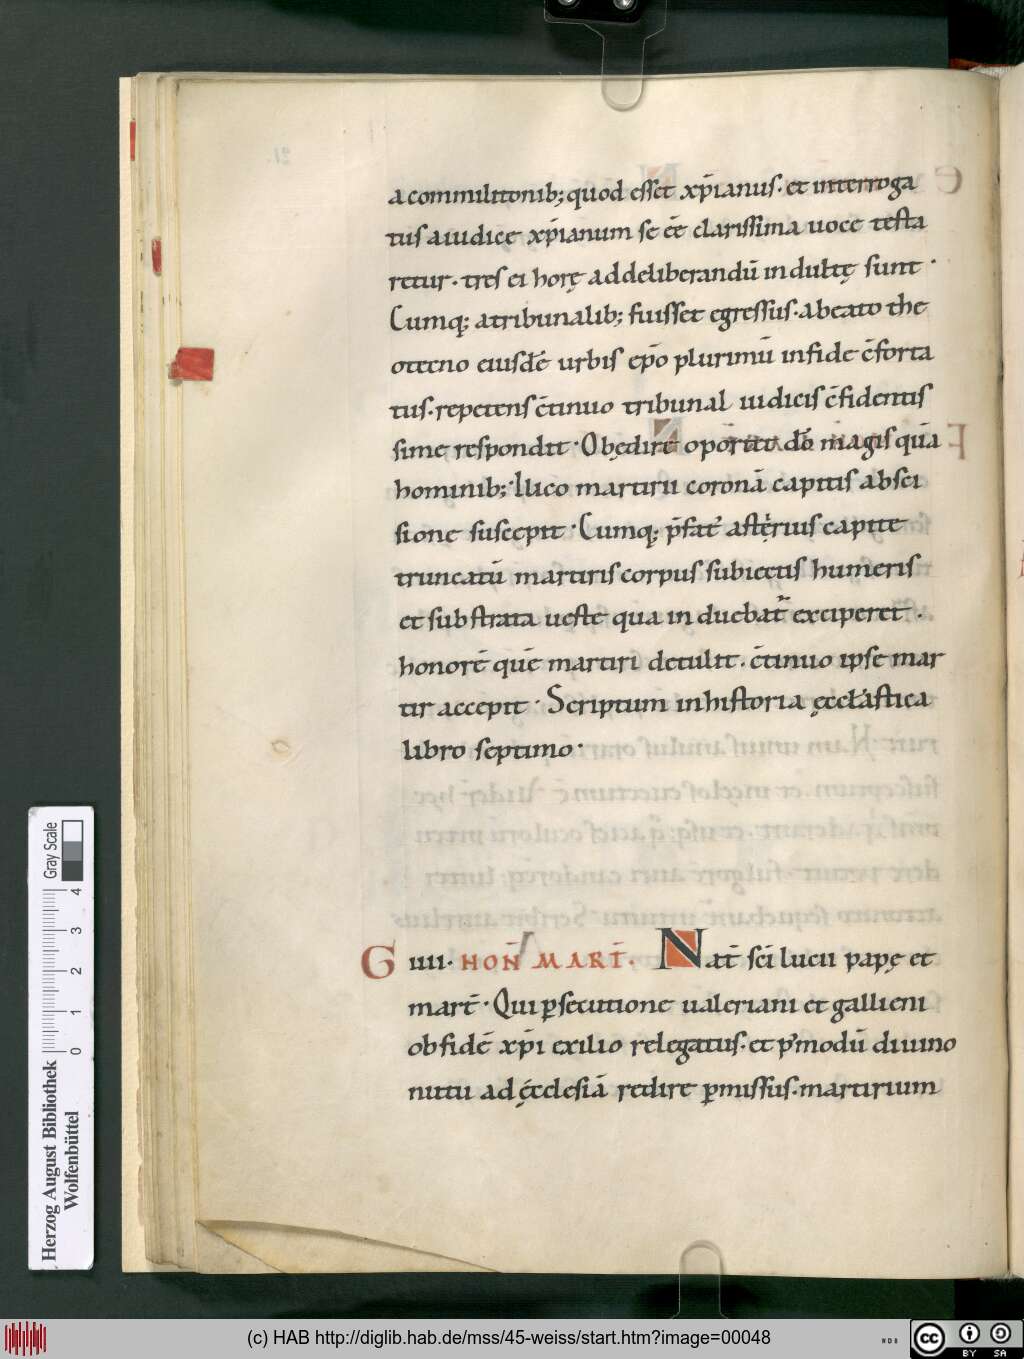 a commilitonib; quod esset xp̄ianus· et interroga
tus a iudice xp̄ianum se eē clarissima uoce testa
retur· tres ei horę ad deliberandū indultę sunt·
Cumq; a tribunalib; fuisset egressus· a beato the
otecno eiusdē urbis ep̄o plurimū in fide c̄forta
tus· repetens c̄tinuo tribunal iudicis c̄fidentis
sime respondit· Obędire oportet dō magis quā
hominib; Ilico martirii coronā capitis absci
sione suscepit· Cumq; p̄fat' asterius capite
truncatū martiris corpus subiectis humeris
et substrata ueste qua induebat' exciperet·
honorē quē martiri detulit· c̄tinuo ipse mar
tir accepit· Scriptum in historia ęcclastica
libro septimo·
G IIII· HON̄ MART̄· Nat̄ sc̄i lucii papę et
mart̄· Qui ꝑsecutione ualeriani et gallieni
ob fidē xp̄i exilio relegatus· et p'modū diuino
nutu ad ęcclesiā redire ꝑmissus· martirium
Herzog August Bibliothek
Wolfenbüttel
0 1 2 3 4
Gray Scale
(c) HAB http://diglib.hab.de/mss/45-weiss/start.htm?image=00048
WDB
cc BY SA